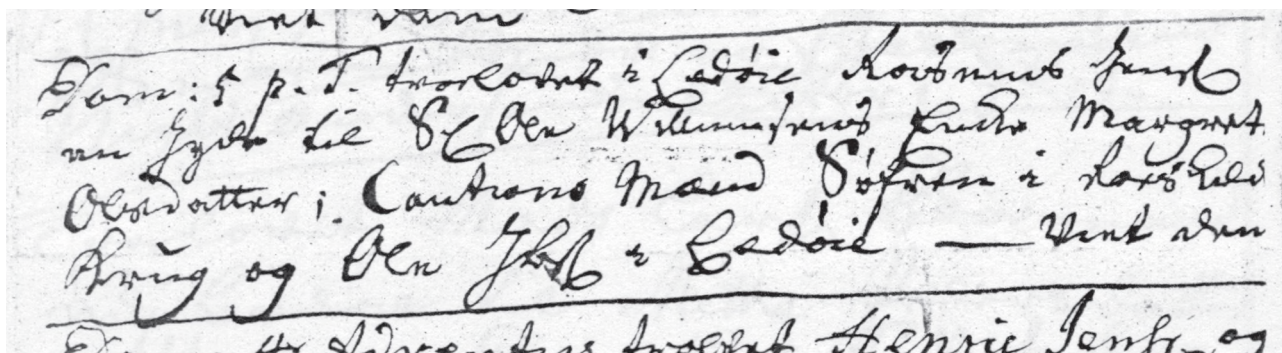 viet dem
Dom: 5 p. T. troelovet i Ledøie Rasmus Jens
en Jyde til Sl Ole Willumsens Enke Margret
Olesdatter; Cautions Mænd Søfren i
Krug og Ole Ibs i Ledøie — Viet den
Adventus trolovet Henric Jens og